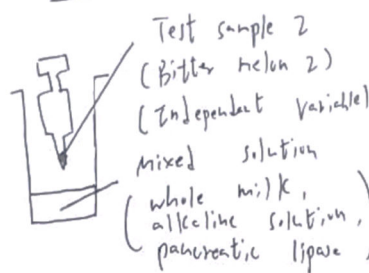 Test sample 2
(Bitter melon 2)
(Independent Variable)
mixed solution
(whole milk,
alkaline solution,
pancreatic lipase)